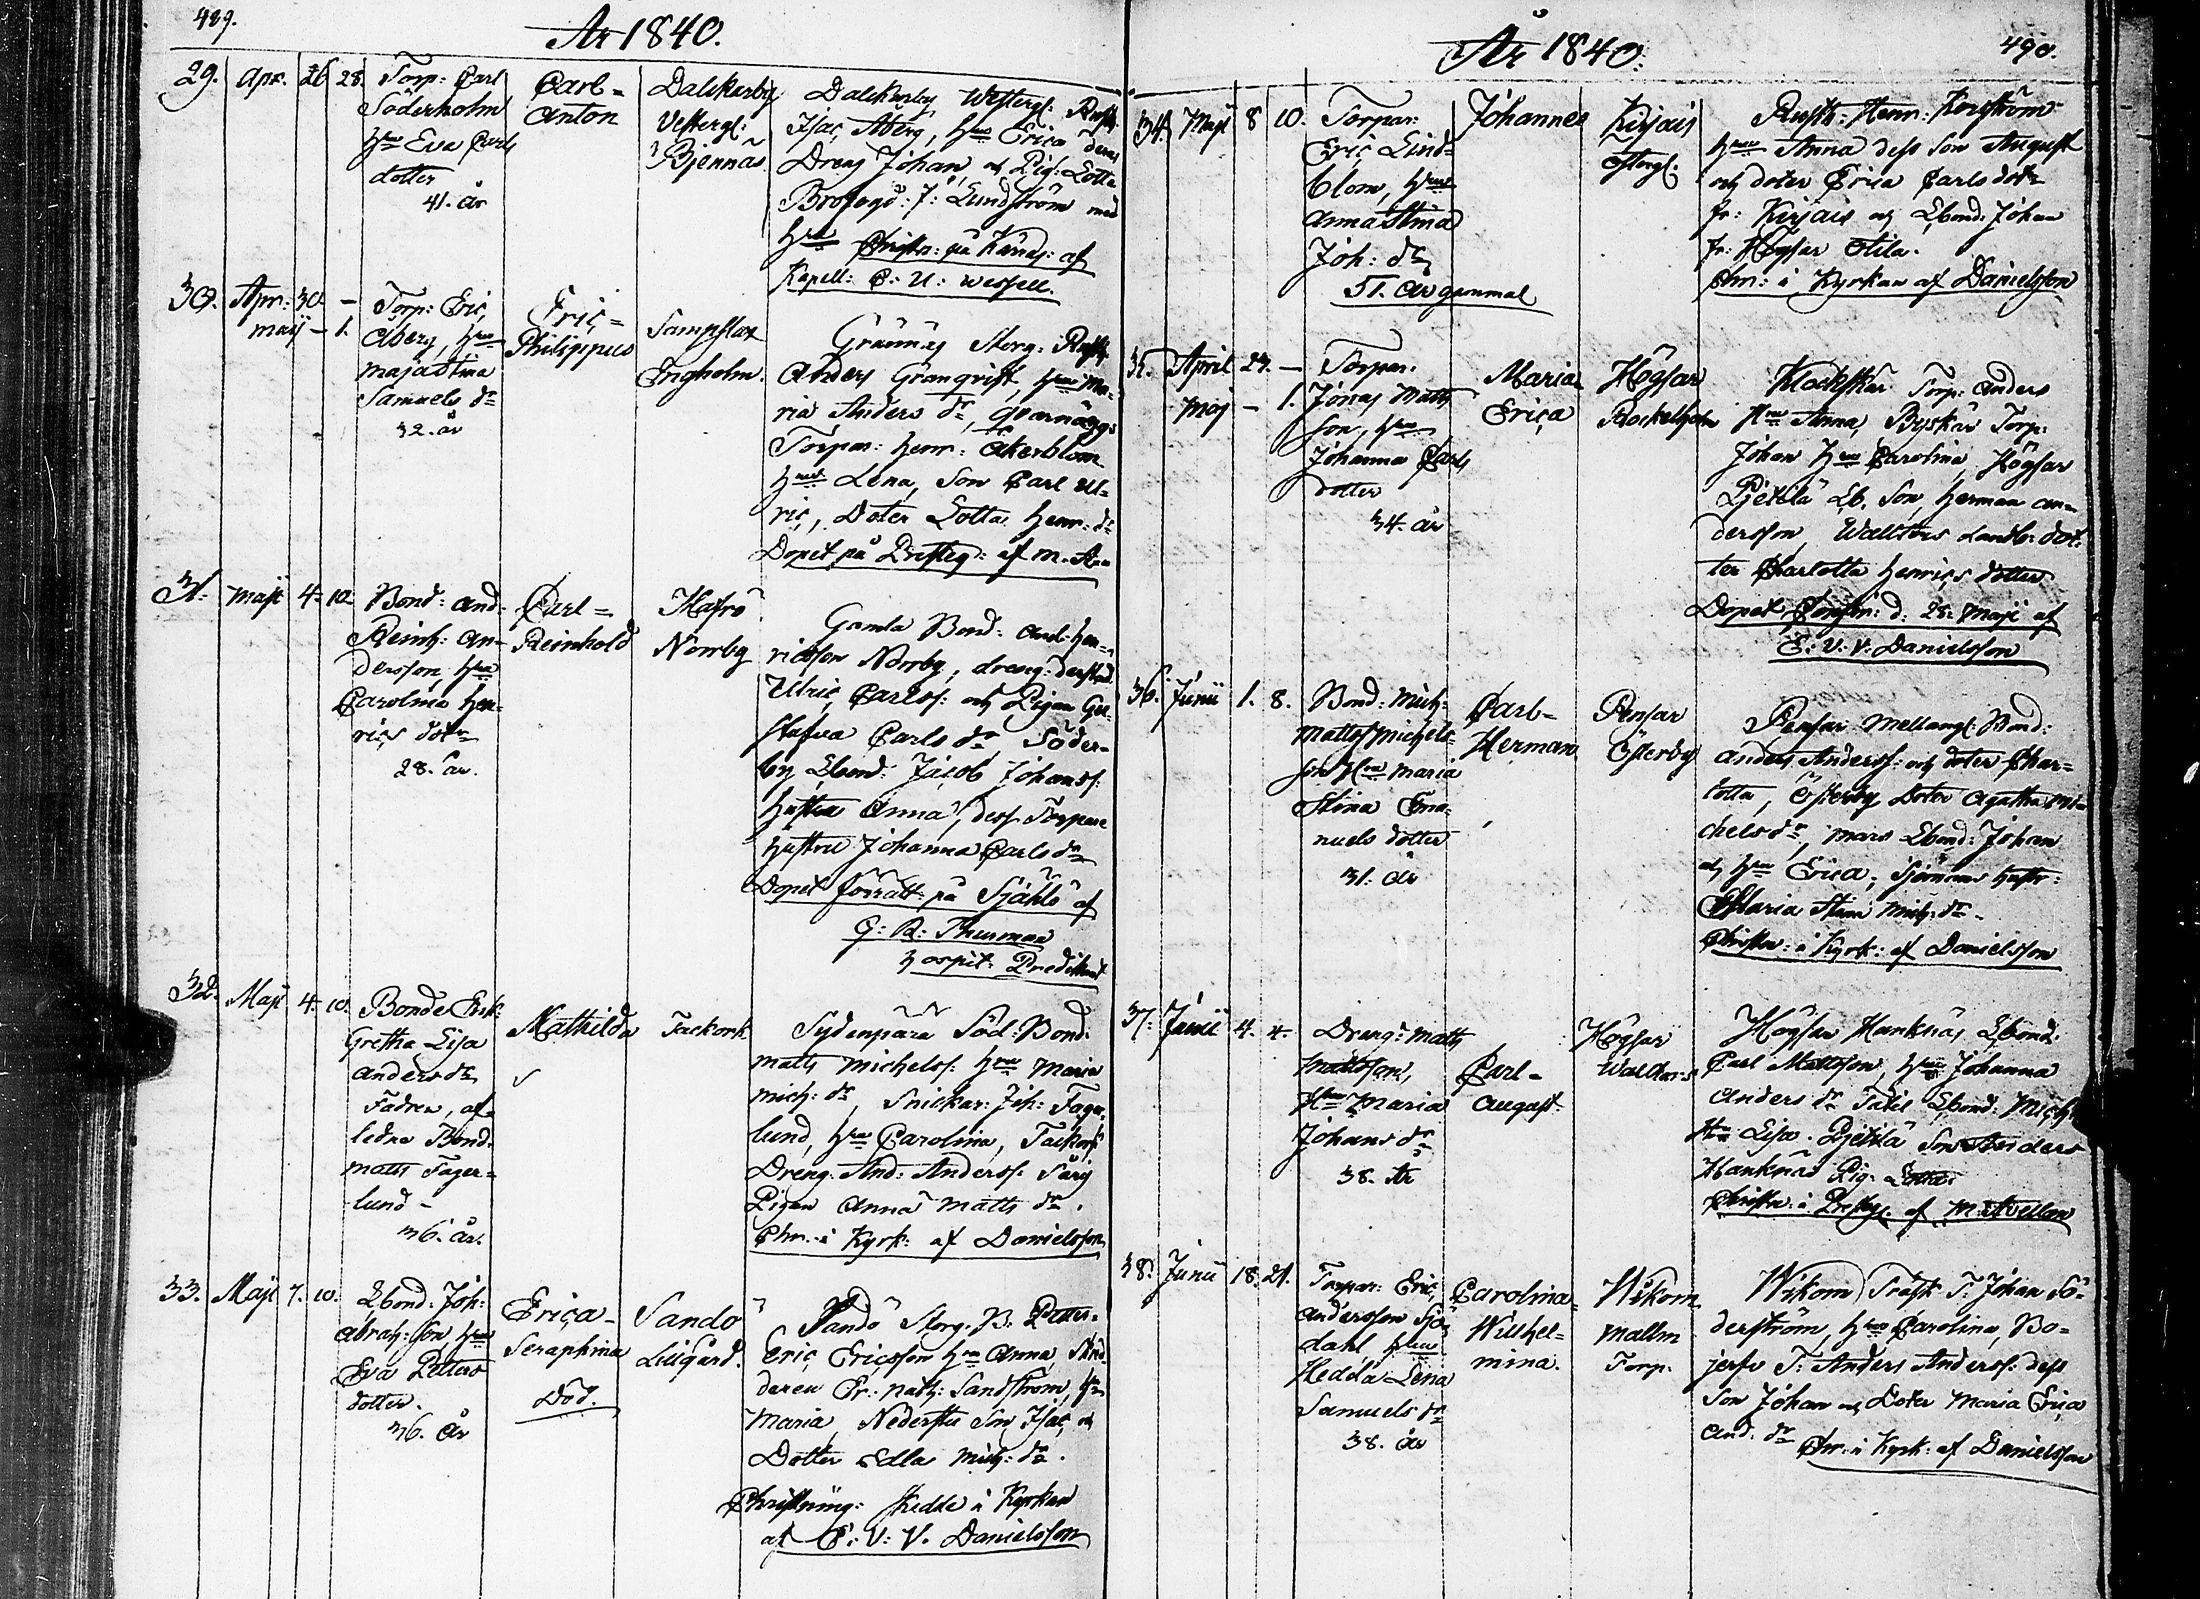 489.
År 1840.
29. Apr. 26 28.
Torp: Carl
Söderholm
Hru Eva Carls
dotter
41. år
Carl=
Anton
Dalskarby
Vestergl:
Bjennäs
Dalskarby Westergl: Rusth:
Isac Åberg, Hru Erica dess
Dreng Johan, och Pig: Lotta
J: Lundström med
Hru Christn: på af
Kapell: C: U: Wessell.
30. Apr: 30. —
Maij — 1.
Torp: Eric
Åberg, Hru
Maja Stina
Samuels dr
32. år
Eric=
Philippus
Sampslax
Engholm.
Grännäs Storg: Rusth:
Anders Granqvist, Hru Ma-
ria Anders dr,
Torpar: Henr: Åkerblom
Hru Lena, Son Carl Ul-
ric, Doter Lotta Henr: dr
Dopet på Presteg: af M. A
31. Maji 4. 10.
Bond: And:
Reinh: An-
dersson, Hru
Carolina Hen-
rics dotr
28. år.
Carl=
Reinhold
Norrby
Gamla Bond: And: Hen-
ricsson Norrby, dreng: derstäd.
Ulric Carlss: och Pigan Gu-
stafva Carls dr, Söder-
by Lbond: Jacob Johanss:
Hustru Anna, dess Torpare
Hustru Johanna Carls dr
Dopet förrätt: på Själö af
G: R: Thurman
Hospit: Predikant
32. Maji 4. 10.
Bonde Enk:
Gretha Lisa
Anders dr,
Fadren, af-
ledne Bond:
Matts Fager-
lund —
36. år.
Mathilda
Tackork
Sydenpära Söd: Bond:
Matts Michelss: Hru Maria
Mich: dr, Snickar: Joh: Fager-
lund, Hru Carolina, Tackork
Dreng: And: Anderss:
Pigan Anna Matts dr,
Chr: i Kyrk: af Danielsson
33. Maji 7. 10.
Lbond: Joh:
Abrah: Son, Hru
Eva Petters
dotter.
36. år
Erica=
Seraphina
Död.
Sandö
Lillgård.
Sandö Storg: B: Petter
Eric Ericsson Hru Anna, Sån-
daren Er: Matts: Sandström, Hru
Maria, Son Isac, och
Dotter Edla Mich: dr.
Christning: skedde i Kyrkan
af C: V: V. Danielsson
År 1840.
490.
34. Maji 8 10.
Torpar:
Eric Lind=
blom, Hru
Anna Stina
Joh: dr
51. år gammal
Johannes
Kirjais
Östergl:
Rusth: Henr: Korström
Hru Anna dess Son August
och doter Erica Carls dotr
fr: Kirjais och Lbond: Johan
fr: Högsar Otila.
Chr: i Kyrkan af Danielsson
35. April 27. —
Maj — 1.
Torpar:
Jonas Matts
son, Hru
Johanna Carls
dotter
34. år
Maria
Erica
Högsar
Rockelholm
Klockskär Torp: Anders
Hru Anna, Byskär Torp:
Johan Hru Carolina, Högsar
Pjetilä Lb. Son, Herman An-
dersson, Walltörs Landb: dot-
ter Charlotta Henrics dotter
Dopet Confir: d. 28. Maji af
C: V: V: Danielsson
36. Junii 1. 8.
Bond: Mich:
Matts Michels-
son Hru Maria
Stina Ema-
nuels dotter
31. år
Carl=
Herman
Pensar
Österby
Pensar Mellangl: Bond:
Anders Anderss: och doter Char-
lotta, Österby Doter Agatha Mi-
chels dr, Mars Lbond: Johan
och Hru Erica, Sjömans Hustr:
Maria Stina Mich: dr.
Christn: i Kyrk: af Danielsson
37. Junii 4. 4.
Dreng: Matts
Mattsson,
Hru Maria
Johans dr
38. år
Carl=
August.
Högsar
Walltars
Högsar Hanknäs Lbond:
Carl Mattsson, Hru Johanna
Anders dr Lbond: Mich:
Hru Lisa. Pjetilä Son Anders
Hanknäs Pig: Lotta:
Christn: i Presteg: af M: Avellan
38. Junii 18. 21.
Torpar: Eric
Andersson Sjö-
dahl Hru
Hedda Lena
Samuels dr
38. år
Carolina=
Wilhel=
mina.
Wikom
Mallm
Torp.
Wikom Träsk T: Johan Sö-
derström, Hru Carolina, Bo-
jerfv T: Anders Anderss: dess
Son Johan och Doter Maria Erica
And: dr Chr: i Kyrk: af Danielsson